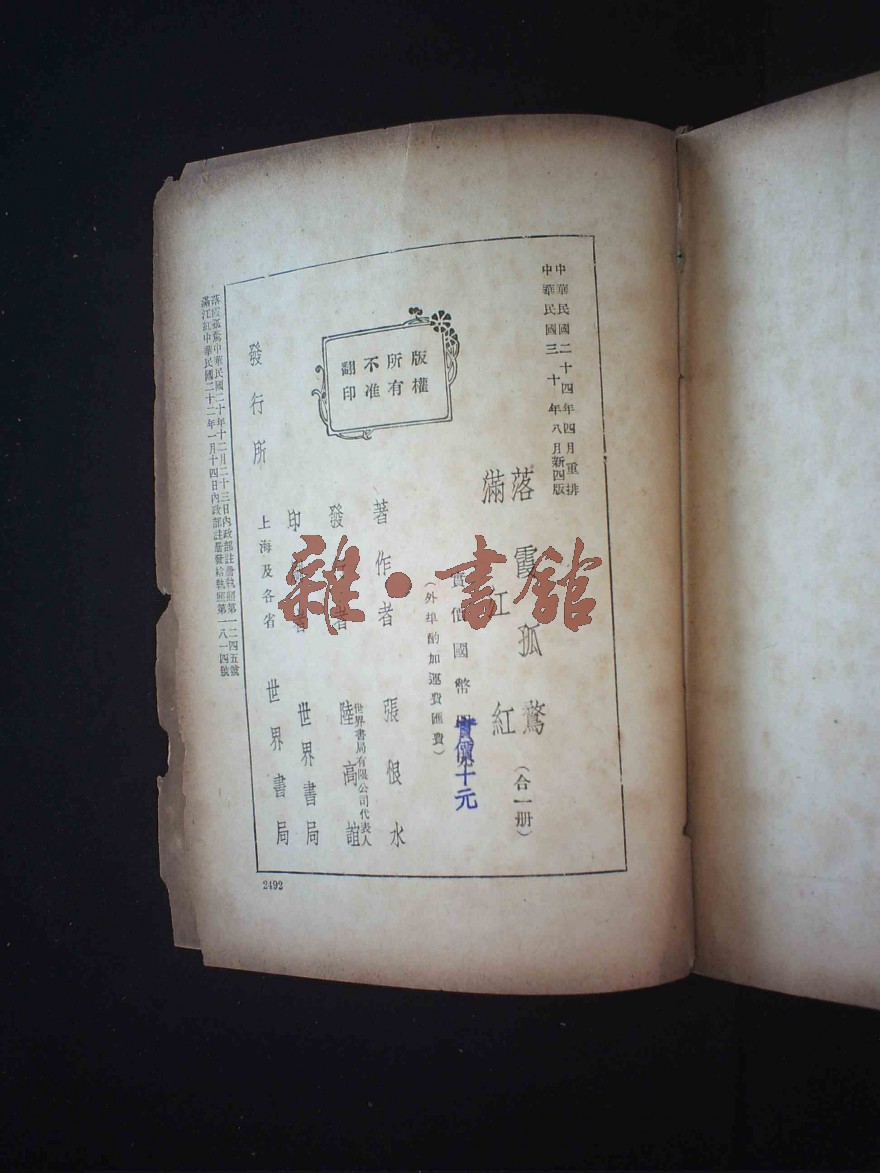 中華民國二十四年四月重排
中華民國三十年八月新四版
落霞孤鶩
滿江紅
(合一册)
實價國幣
實價十元
(外埠酌加運費匯費)
版權所有
不准翻印
著作者 張恨水
發行者 世界書局有限公司代表人 陸高誼
印刷者 世界書局
發行所 上海及各省 世界書局
落霞孤鶩中華民國二十年十二月二十三日內政部註册執照第一二四五號
滿江紅中華民國二十二年一月十四日內政部註册發給執照第一八一四號
2492
雜·書館